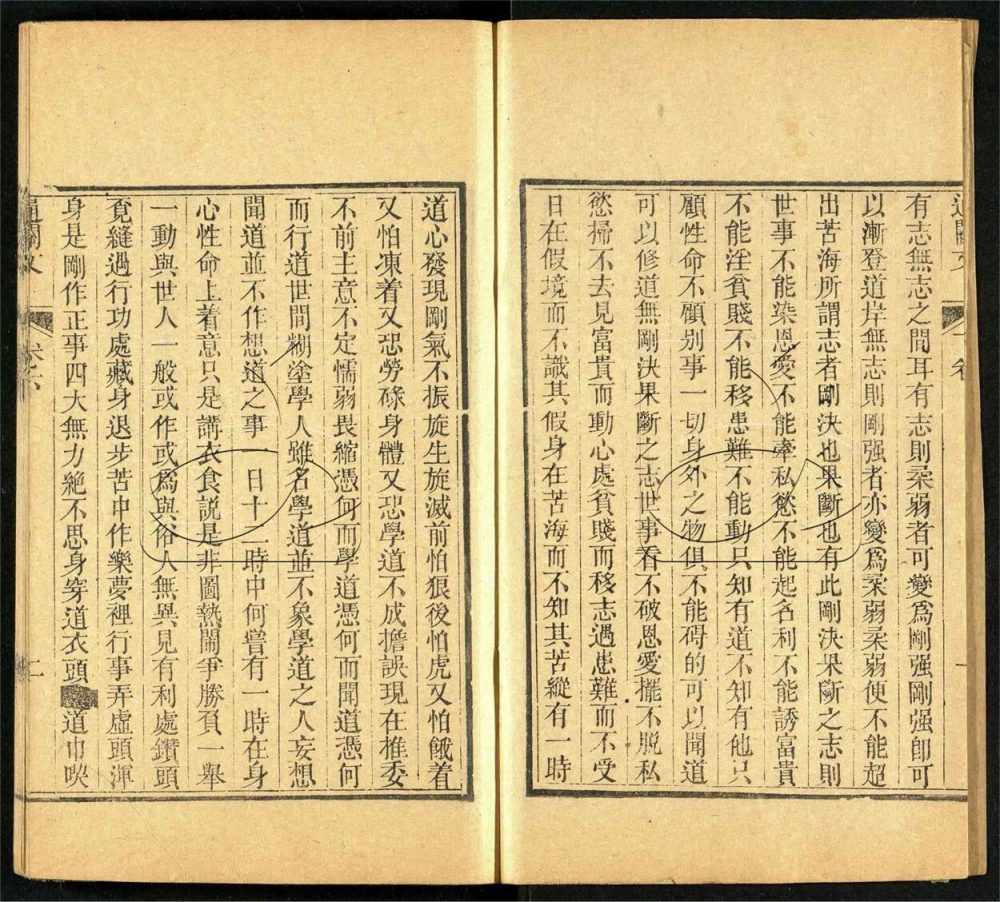 通關文
卷
有志無志之間耳有志則柔弱者可變爲剛强剛强卽可
以漸登道岸無志則剛强者亦變爲柔弱柔弱便不能超
出苦海所謂志者剛決也果斷也有此剛決果斷之志則
世事不能染恩愛不能牽私慾不能起名利不能誘富貴
不能淫貧賤不能移患難不能動只知有道不知有他只
顧性命不顧别事一切身外之物俱不能碍的可以聞道
可以修道無剛決果斷之志世事看不破恩愛擺不脱私
慾掃不去見富貴而動心處貧賤而移志遇患難而不受
日在假境而不識其假身在苦海而不知其苦縱有一時
道心發現剛氣不振旋生旋滅前怕狼後怕虎又怕餓着
又怕凍着又恐勞碌身體又恐學道不成擔誤現在推委
不前主意不定懦弱畏縮憑何而學道憑何而聞道憑何
而行道世間糊塗學人雖名學道並不象學道之人妄想
聞道並不作想道之事一日十二時中何嘗有一時在身
心性命上着意只是講衣食説是非圖熱鬧爭勝負一舉
一動與世人一般或作或爲與俗人無異見有利處鑽頭
覓縫過行功處藏身退步苦中作樂夢裡行事弄虛頭渾
身是剛作正事四大無力絶不思身穿道衣頭 道巾喫
通關文
卷